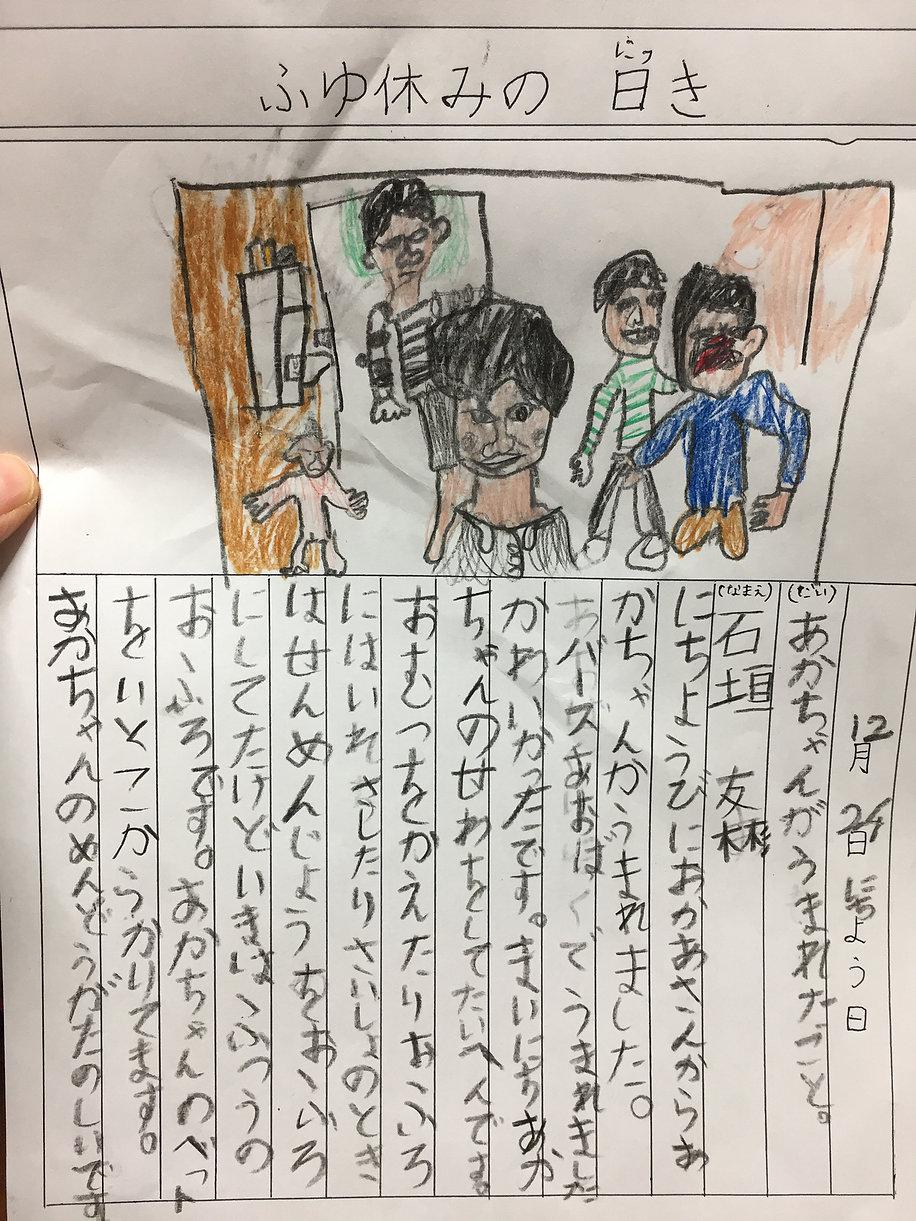 にっ
ふゆ休みの日き
12月24日にちよう日
(だい)あかちゃんがうまれたこと。
(なまえ)石垣 友彬
にちようびにおかあさんからあ
かちゃんがうまれました。
おバーズまおばくでうまれました
かわいかったです。まいにちあか
ちゃんのせわをしてたいへんです。
おむつをかえたりおふろ
にはいれさしたりさいしょのとき
はせんめんじょうをおふろ
にしてたけどいまはふつうの
おふろです。あかちゃんのべっト
をいとこからかりてます。
あかちゃんのめんどうがたのしいです